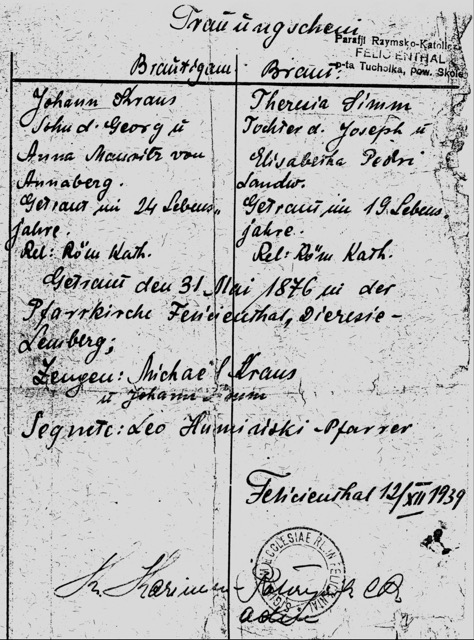 Trauungschein
Parafji Rzymsko-Katolic
FELICIENTHAL
p-ta Tucholka, pow. Skole
Bräutigam: Braut:
Johann Kraus
Sohn d. Georg u
Anna Mauritz von
Annaberg.
Getraut im 24 Lebens„
jahre.
Rel: Röm Kath.
Theresia Simm
Tochter d. Joseph u
Elisabetha Pedri
Landw.
Getraut im 19. Lebens
jahre.
Rel: Röm Kath.
Getraut den 31 Mai 1876 in der
Pfarrkirche Felicienthal, Dieresie-
Lemberg;
Zeugen: Michael Kraus
u Johann Simm
Segnete: Leo Pfarrer
Felicienthal 12/XII 1939
ECCLESIAE